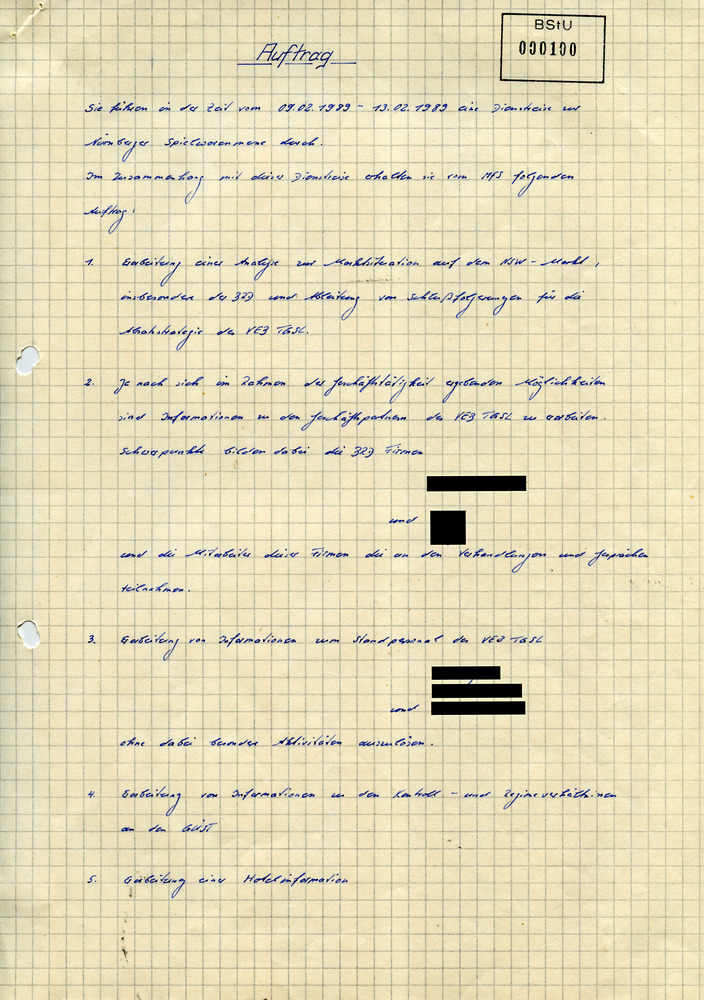 BStU
000100
Auftrag
Sie führen in der Zeit vom 09.02.1989 - 13.02.1989 eine Dienstreise zur
Nürnberger Spielwarenmesse durch.
Im Zusammenhang mit dieser Dienstreise erhalten sie vom MfS folgenden
Auftrag:
1. Erarbeitung einer Analyse zur Marktsituation auf dem NSW-Markt,
insbesondere der BRD und Ableitung von Schlußfolgerungen für die
Absatzstrategie des VEB TGSL.
2. Je nach sich im Rahmen der Geschäftstätigkeit ergebenden Möglichkeiten
sind Informationen zu den Geschäftspartnern des VEB TGSL zu erarbeiten.
Schwerpunkte bilden dabei die BRD Firmen
und
und die Mitarbeiter dieser Firmen die an den Verhandlungen und Gesprächen
teilnehmen.
3. Erarbeitung von Informationen zum Standpersonal des VEB TGSL
und
ohne dabei besondere Aktivitäten auszulösen.
4. Erarbeitung von Informationen zu den Kontroll- und Regimeverhältnissen
an den GÜST
5. Erarbeitung einer Hotelinformation